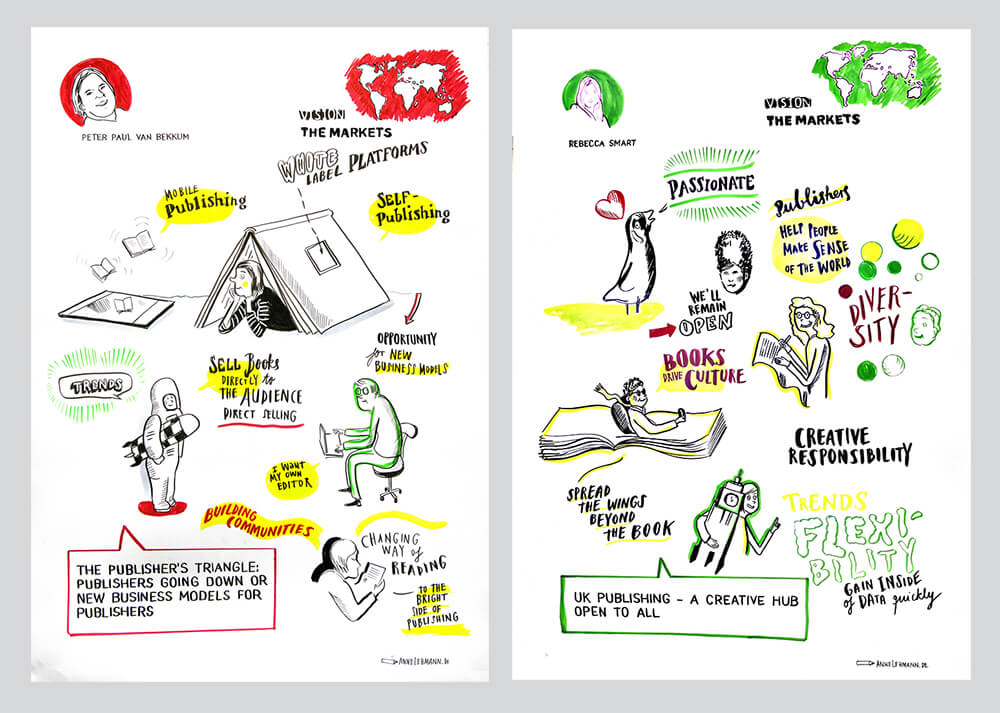 PETER PAUL VAN BEKKUM
VISION
THE MARKETS
WHITE
LABEL PLATFORMS
MOBILE
Publishing
SELF-
Publishing
OPPORTUNITY
for NEW
BUSINESS MODELS
TRENDS
SELL BOOKS
DIRECTLY to
THE AUDIENCE
DIRECT SELLING
I WANT
MY OWN
EDITOR
BUILDING
COMMUNITIES
CHANGING
WAY of
READING
TO THE
BRIGHT
SIDE OF
PUBLISHING
THE PUBLISHER'S TRIANGLE:
PUBLISHERS GOING DOWN OR
NEW BUSINESS MODELS FOR
PUBLISHERS
ANNELEHMANN.DE
REBECCA SMART
VISION
THE MARKETS
PASSIONATE
Publishers
HELP PEOPLE
MAKE SENSE
OF THE WORLD
WE'LL
REMAIN
OPEN
DIVER-
SITY
BOOKS
DRIVE CULTURE
CREATIVE
RESPONSIBILITY
SPREAD
THE WINGS
BEYOND
THE BOOK
TRENDS
FLEXI-
BILITY
GAIN INSIDE
of DATA quickly
UK PUBLISHING – A CREATIVE HUB
OPEN TO ALL
ANNELEHMANN.DE